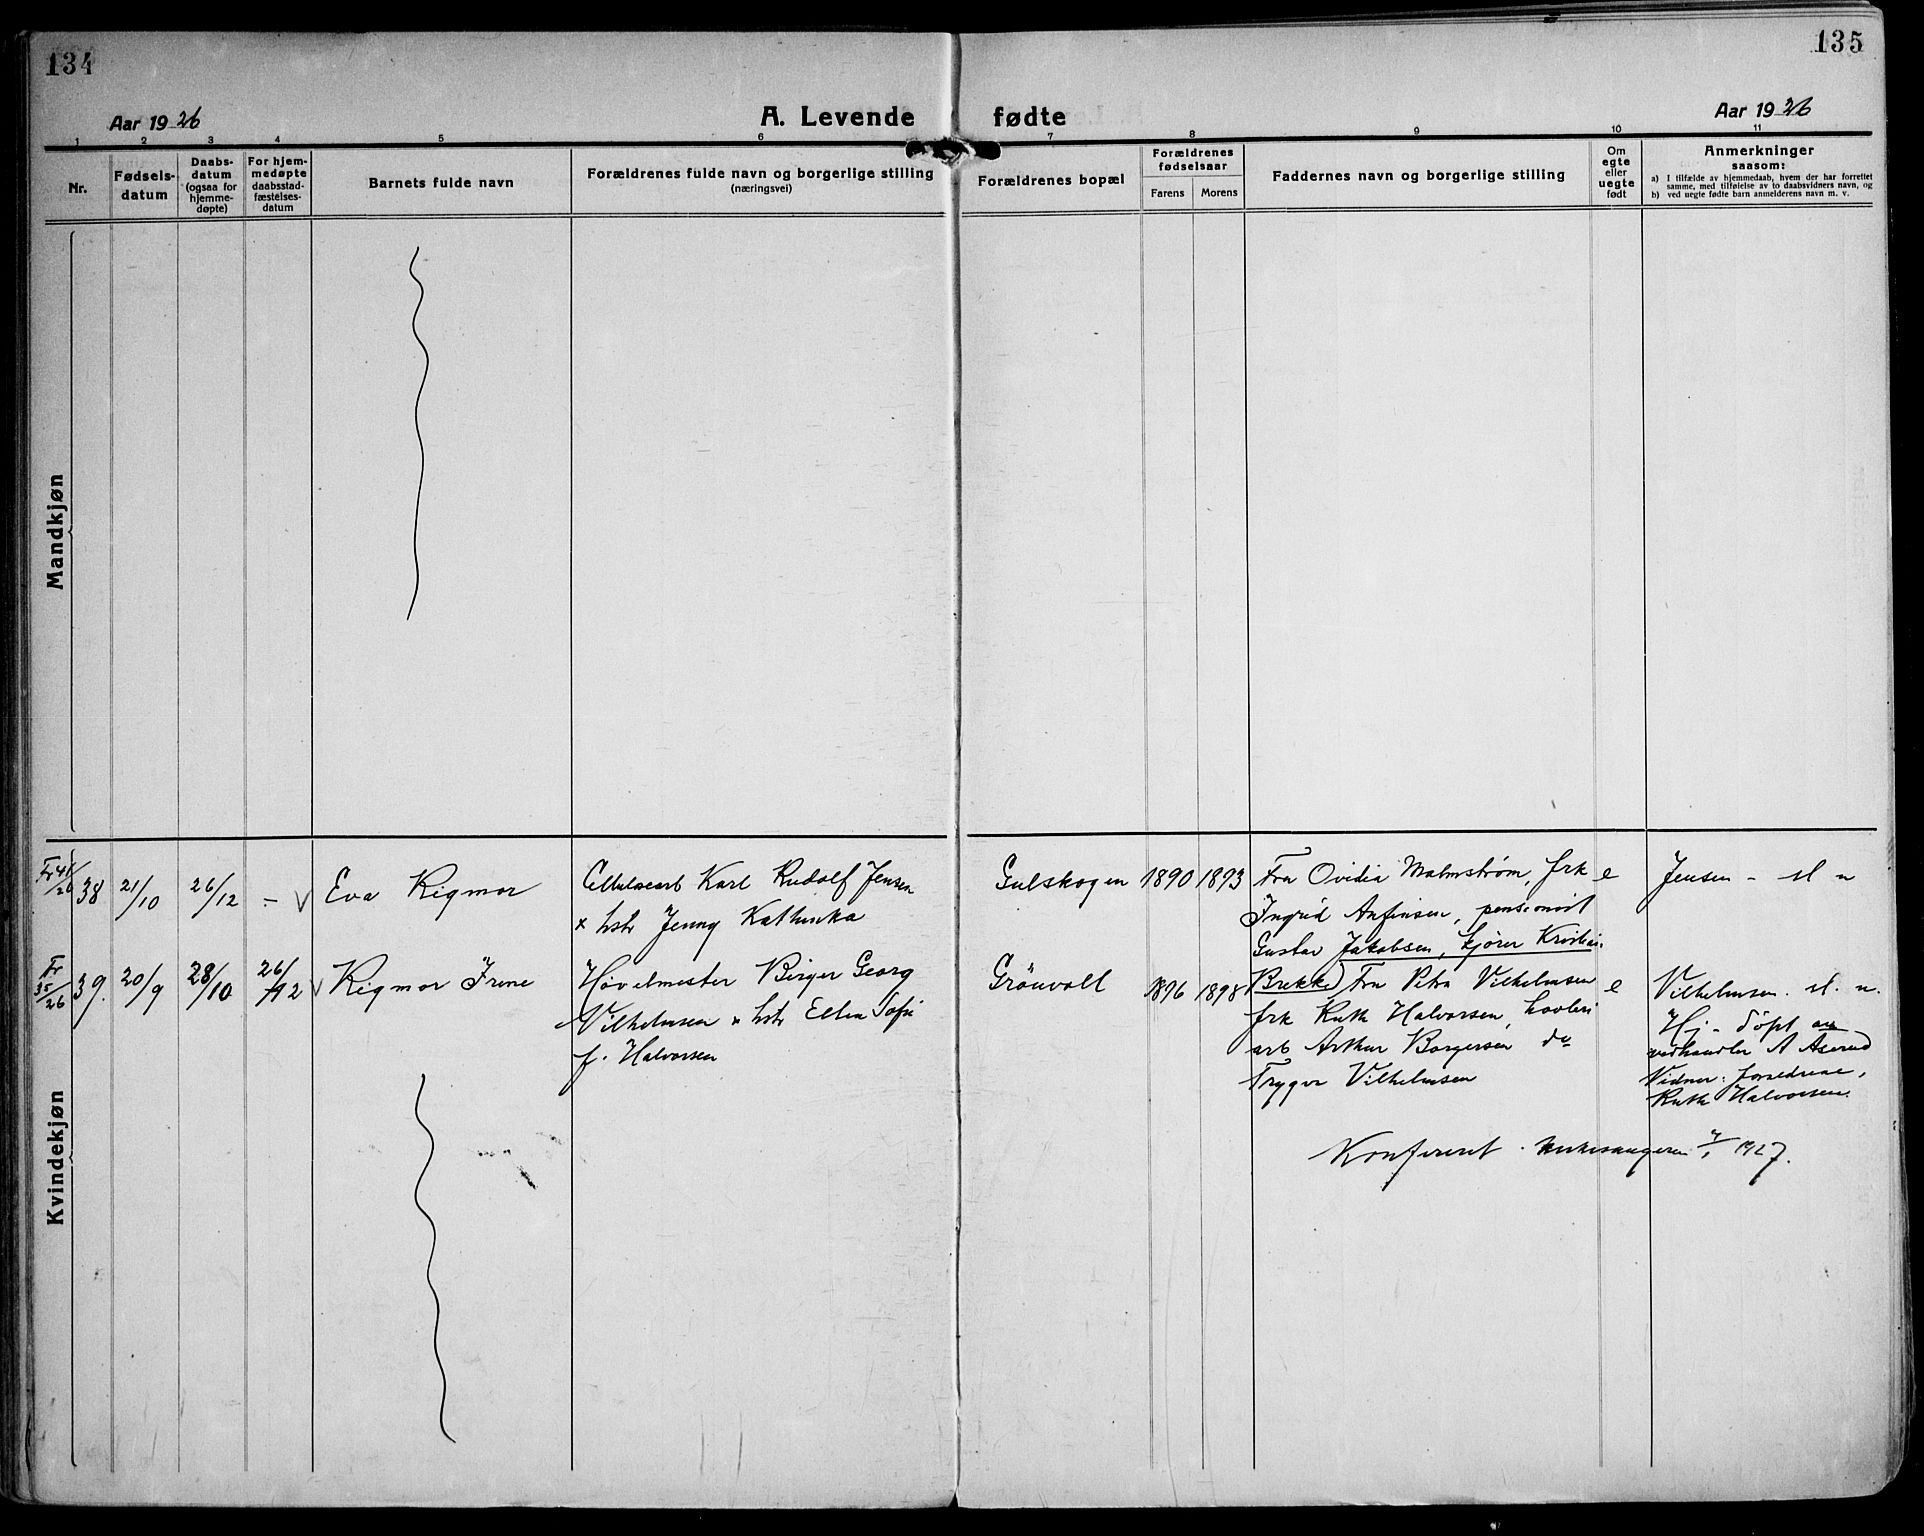 134
135
Aar 1926
A. Levende fødte
Aar 1926
1 2 3 4 5 6 7 8 9 10 11
Nr.
Fødsels-
datum
Daabs-
datum
(ogsaa for
hjemme-
døpte)
For hjem-
medøpte
daabsstad-
fæstelses-
datum
Barnets fulde navn
Forældrenes fulde navn og borgerlige stilling
(næringsvei)
Forældrenes bopæl
Forældrenes
fødselsaar
Farens
Morens
Faddernes navn og borgerlige stilling
Om
egte
eller
uegte
født
Anmerkninger
saasom:
a) I tilfælde av hjemmedaab, hvem der har forrettet
samme, med tilføielse av to daabsvidners navn, og
b) ved uegte fødte barn anmelderens navn m. v.
Mandkjøn
Kvindekjøn
Fr 41/26
38
21/10
26/12
-
V
Eva Rigmor
Celluloсearb Karl Rudolf Jensen
x hstr Jenny Kathinka
Gulskogen
1890
1893
Fru Ovidia Malmstrøm, frk
Ingrid Anfinsen, pensionist
Gustav Jakobsen, kjører Kristian
Brekke
e
Jensen -
Fr 35/26
39.
20/9
28/10
26/12
V
Rigmor Irene
Høvelmester Birger Georg
Vilhelmsen x hstr Ellen Sofie
f. Halvorsen
Grönvoll
1896
1898
Fru Petra Vilhelmsen
frk Ruth Halvorsen, høvleri
arb Arthur Borgersen do
Trygve Vilhelmsen
e
Vilhelmsen.
Hj - döpt av
vedhandler A Aserud
Vidner: forældrene,
Ruth Halvorsen.
Konfereret. Kirkesangeren 7/1 1927.